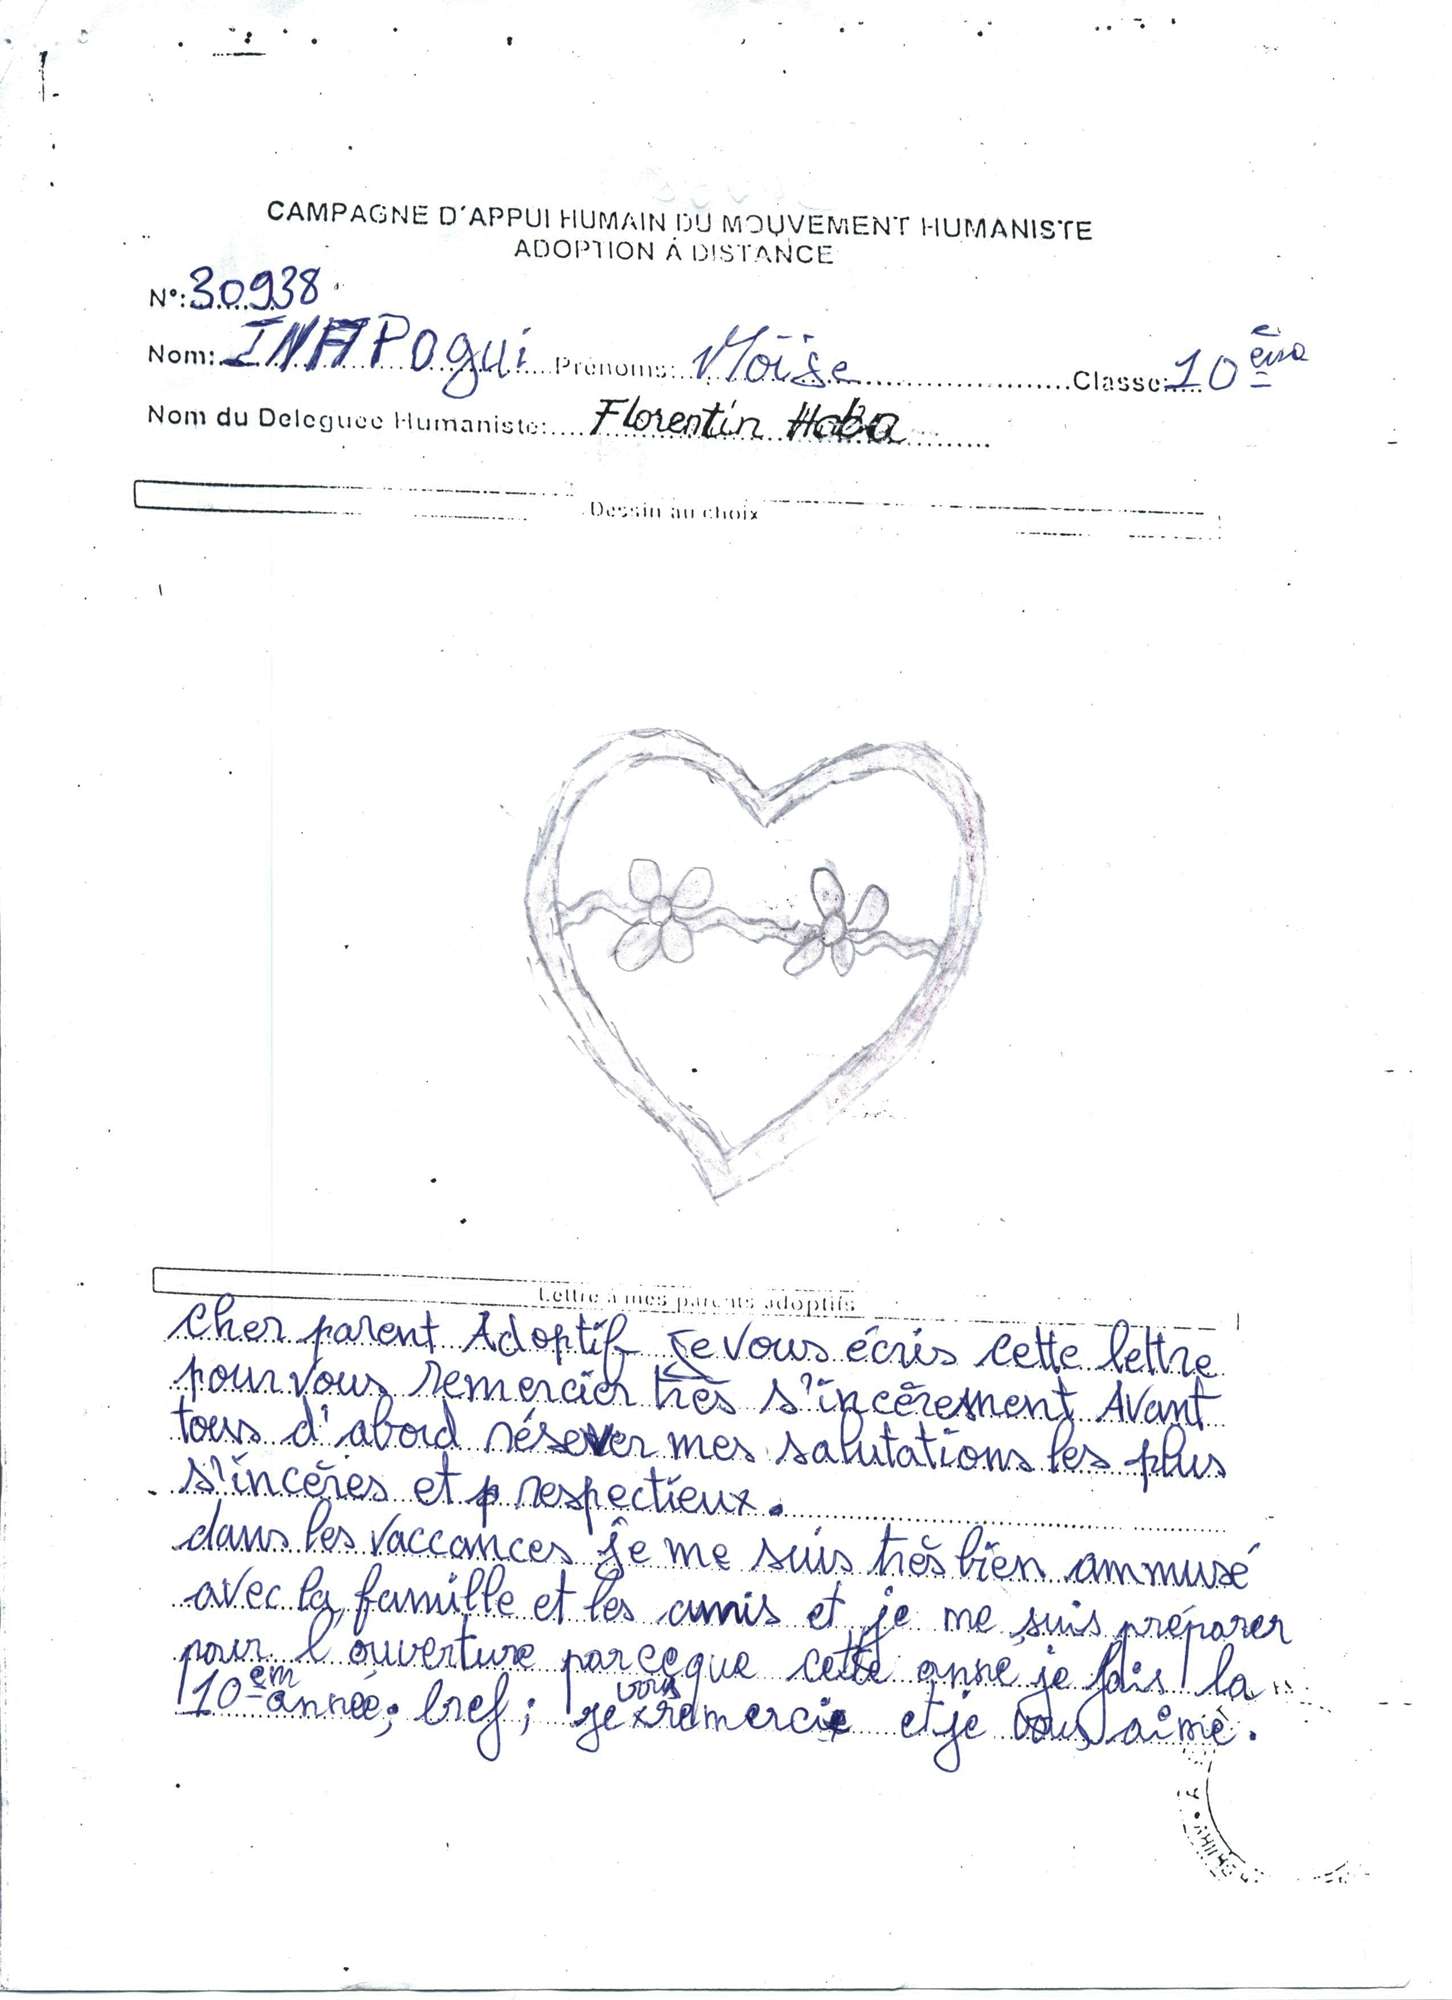 CAMPAGNE D'APPUI HUMAIN DU MOUVEMENT HUMANISTE
ADOPTION À DISTANCE
N°: 30938
Nom: INAPOgui Prénoms: Moïse Classe: 10 ème
Nom du Deleguee Humaniste: Florentin Haba
Dessin au choix
Lettre à mes parents adoptifs
cher parent Adoptif Je vous écris cette lettre
pour vous remercier très s'incèrement Avant
tous d'abord réserver mes salutations les plus
s'incères et respectieux.
dans les vaccances je me suis très bien ammusé
avec la famille et les amis et je me suis préparer
pour l'ouverture parceque cette anné je fais la
10 em année; bref; je vous remercie et je vous aimè.